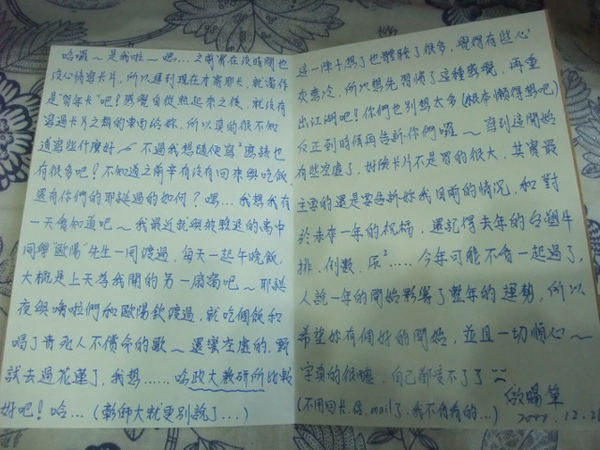 哈囉～是我啦～嗯...之前實在沒時間也
沒心情寫卡片，所以拖到現在才寄耶卡，就當作
是"賀年卡"吧！感覺自從熟起來之後，就沒有
寫過卡片之類的東西給妳，所以真的很不知
道寫些什麼好，不過我想隨便寫寫應該也
有很多吧！不知道之前辛有沒有回來與吃飯，
還有你們的耶誕過的如何？嗯...我想我有
一天會知道吧～我最近就與被甄選的高中
同學"歐陽"先生一同渡過，每天一起午晚飯，
大概是上天為我開的另一扇窗吧～耶誕
夜與啦啦們和歐陽欽渡過，就吃個飯和
唱了首死人不償命的歌～還蠻空虛的，
試去過花蓮了，我想......哈政大教研所比較
好吧！哈...(彰師大就更別說了...)
這一件小想了也體驗了很多，覺得有些心
灰意冷，所以想先習慣了這種感覺，再重
出江湖吧！你們也別想太多(根本懶得想吧)
反正到時候再告訴你們囉～寫到這開始
有些空虛了，好險卡片不是買的很大，其實最
主要的還是要告訴妳我目前的情況，和對
於未來一年的祝福，還記得去年的台塑牛
排、倒數、......今年可能不會一起過了，
人說一年的開始影響了整年的運勢，所以
希望妳有個好的開始，並且一切順心～
字真的很醜，自己都受不了了
(不用回卡、信、mail了，我不會看的...)
筆